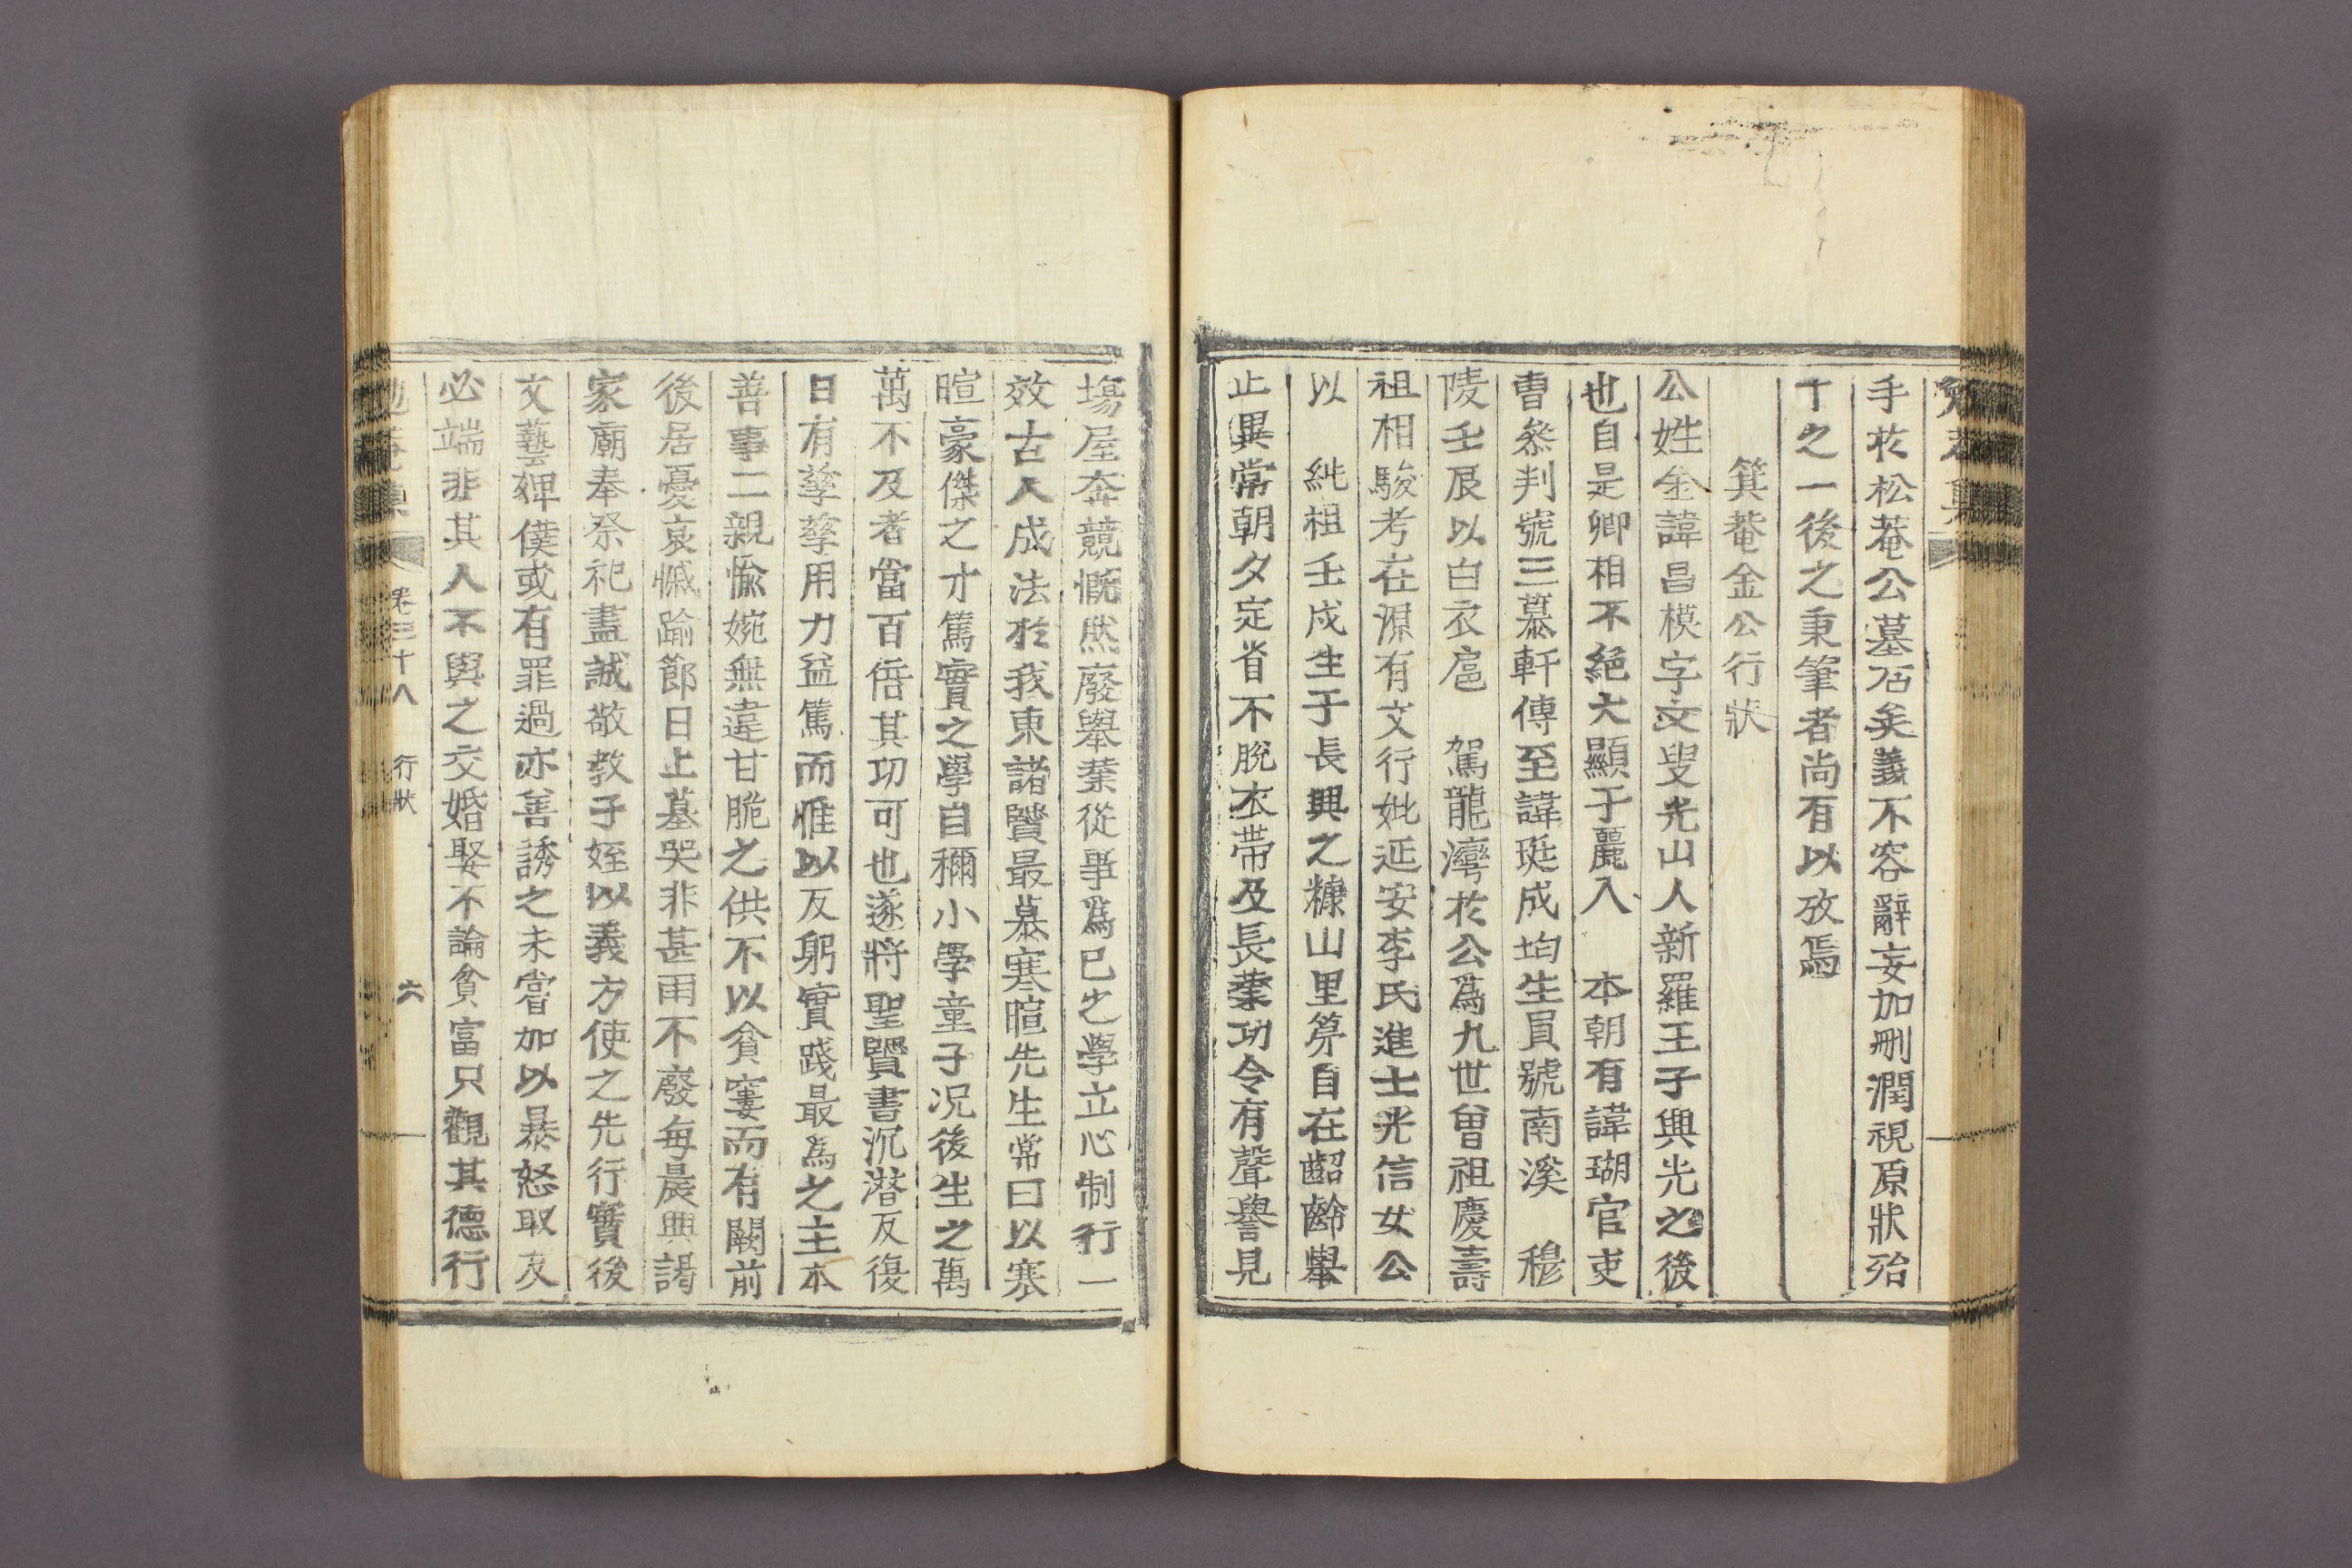 手於松菴公墓石矣義不容辭妄加刪潤視原狀殆
十之一後之秉筆者尚有以攷焉
箕菴金公行狀
公姓金諱昌模字文叟光山人新羅王子興光之後
也自是卿相不絕大顯于麗入 本朝有諱瑚官吏
曹叅判號三慕軒傳至諱珽成均生員號南溪 穆
陵壬辰以白衣扈 駕龍灣於公爲九世曾祖慶壽
祖相駿考在源有文行妣延安李氏進士光信女公
以 純祖壬戌生于長興之糠山里第自在齠齡擧
止異常朝夕定省不脫衣帶及長業功令有聲譽見
場屋奔競慨然廢擧業從事爲已之學立心制行一
效古人成法於我東諸贒最慕寒暄先生常曰以寒
暄豪傑之才篤實之學自稱小學童子况後生之萬
萬不及者當百倍其功可也遂將聖贒書沉潛反復
日有孳孳用力益篤而惟以反躬實踐最爲之主本
善事二親愉婉無違甘脆之供不以貧窶而有闕前
後居憂哀慽踰節日上墓哭非甚雨不廢每晨興謁
家廟奉祭祀盡誠敬敎子姪以義方使之先行實後
文藝婢僕或有罪過亦善誘之未嘗加以暴怒取友
必端非其人不與之交婚娶不論貧富只觀其德行
卷三十八 行狀 六